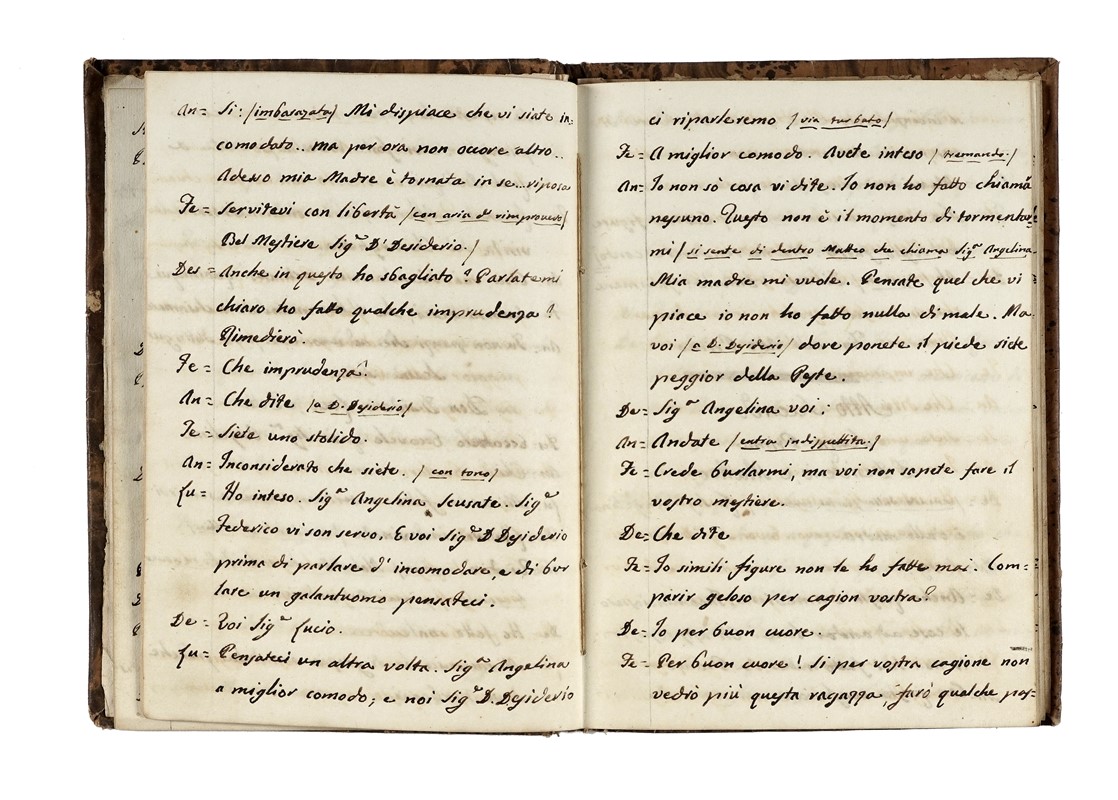 An= Si: /imbarazata/ Mi dispiace che vi siate in=
comodato.. ma per ora non occore altro..
Adesso mia Madre è tornata in se... riposa
Fe= Servitevi con libertà /con aria di rimprovero/
Bel Mestiere Sig.r D. Desiderio./
Des= Anche in questo ho sbagliato? Parlatemi
chiaro ho fatto qualche imprudenza?
Rimedierò.
Fe= Che imprudenza?
An= Che dite /a D. Desiderio/
Fe= Siete uno stolido.
An= Inconsiderato che siete. /con tono/
Lu= Ho inteso. Sig.a Angelina scusate. Sig.r
Federico vi son servo. E voi Sig.r D. Desiderio
prima di parlare d'incomodare, e di bur
lare un galantuomo pensateci.
De= Voi Sig.r Lucio.
Lu= Pensateci un altra volta. Sig.a Angelina
a miglior comodo; e noi Sig.r D. Desiderio
ci riparleremo /via turbato/
Fe= A miglior comodo. Avete inteso /tremando:/
An= Io non sò cosa vi dite. Io non ho fatto chiamà
nessuno. Questo non è il momento di tormentar
mi /si sente di dentro Matteo che chiama Sig.a Angelina
Mia madre mi vuole. Pensate quel che vi
piace io non ho fatto nulla di male. Ma
voi /a D. Desiderio/ dove ponete il piede siete
peggior della Peste.
De= Sig.a Angelina voi;
An= Andate /entra indispettita./
Fe= Crede burlarmi, ma voi non sapete fare il
vostro mestiere.
De= Che dite
Fe= Io simili figure non le ho fatte mai. Com=
parir geloso per cagion vostra?
De= Io per buon cuore.
Fe= Per buon cuore! Si per vostra cagione non
vedrò più questa ragazza, farò qualche pes=